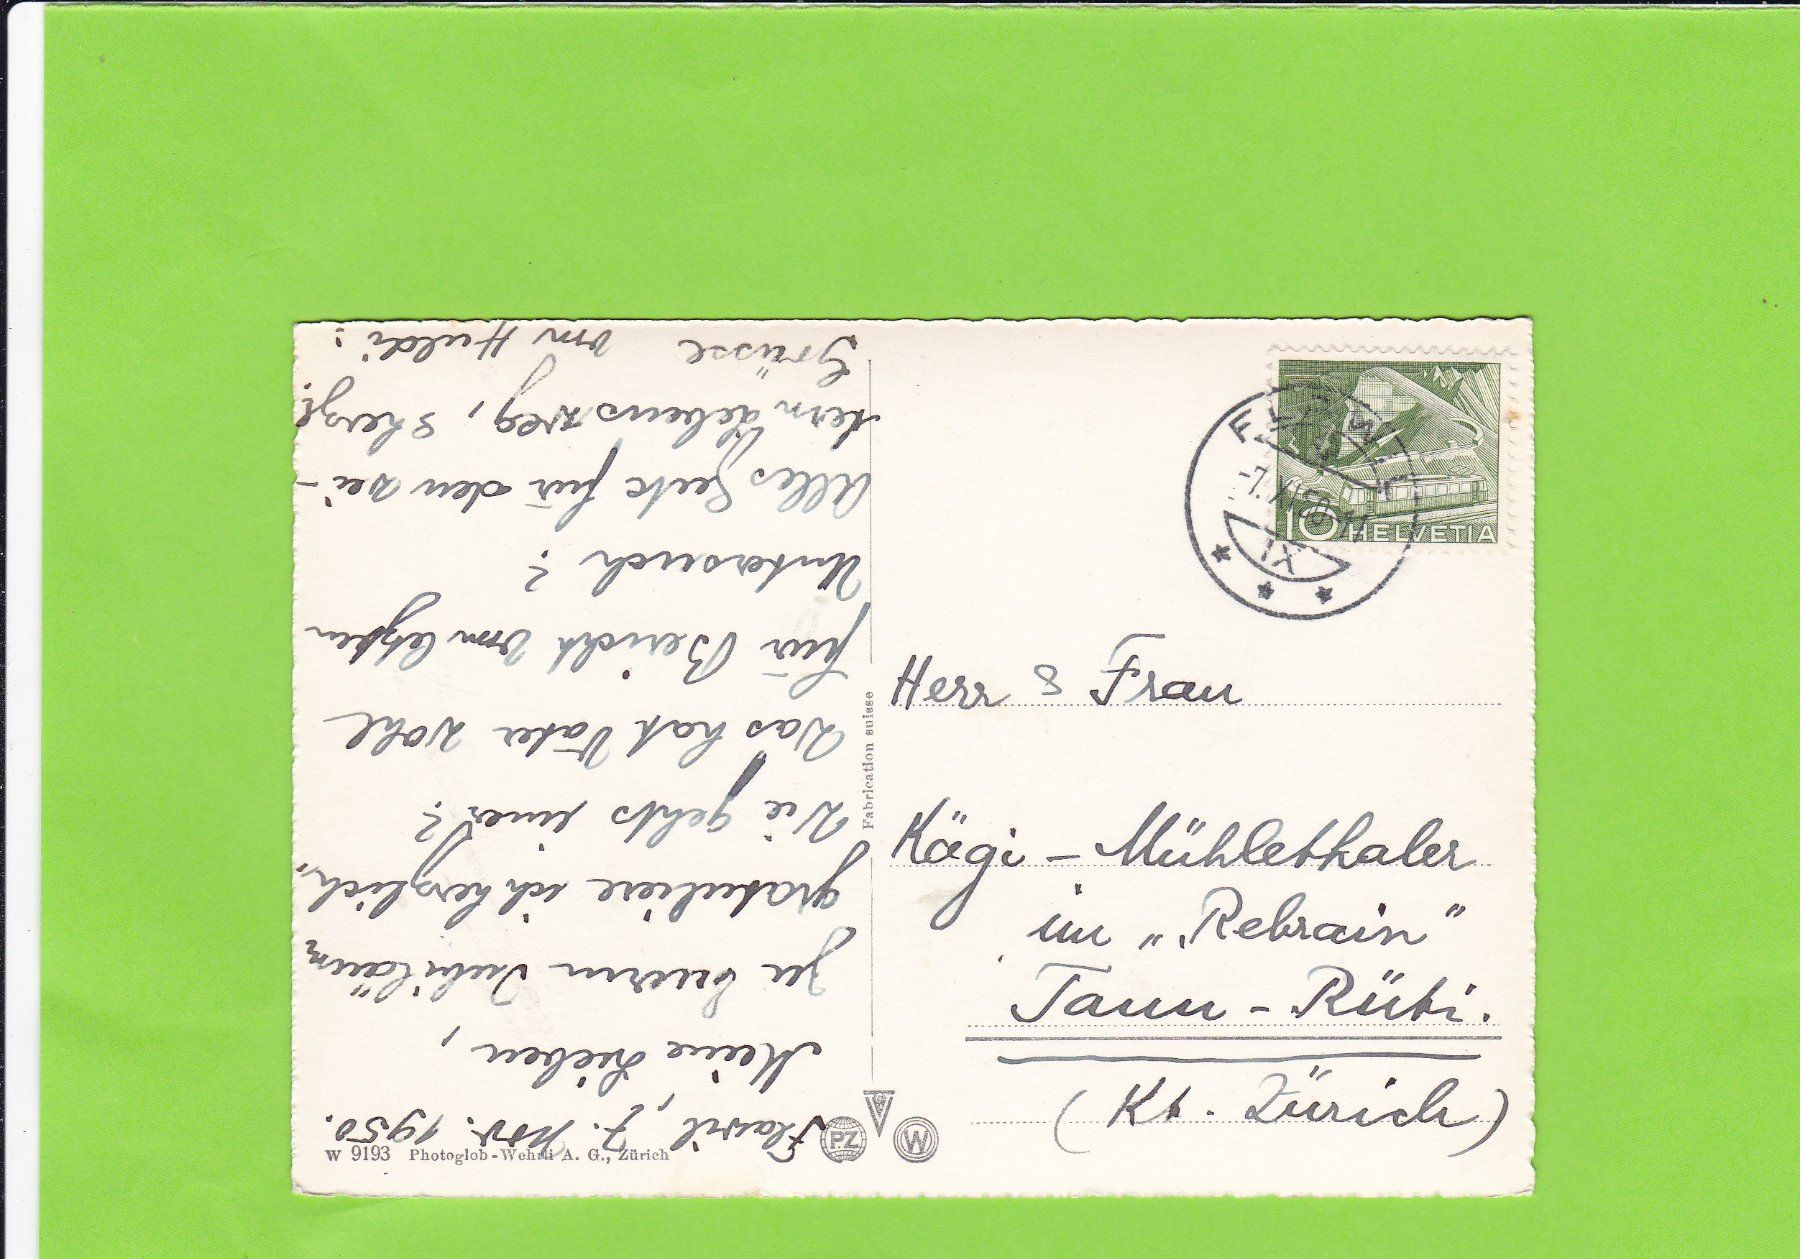 Flawil, 7. Nov. 1950.
Meine Lieben,
Zu Euerm Jubiläum
gratuliere ich herzlich.
Wie gehts immer?
Was hat Vater wohl
für Bericht vom letzten
Untersuch?
Alles Gute für den wei-
tern Lebensweg, & herzl.
Grüsse vom Huldi.
W 9193 Photoglob-Wehrli A. G., Zürich
Fabrication suisse
PZ
W
FLAWIL
-7. XI. 50. 11
IX
10 HELVETIA
Herr & Frau
Kägi - Mühlethaler
im "Rebrain"
Tann - Rüti.
(Kt. Zürich)